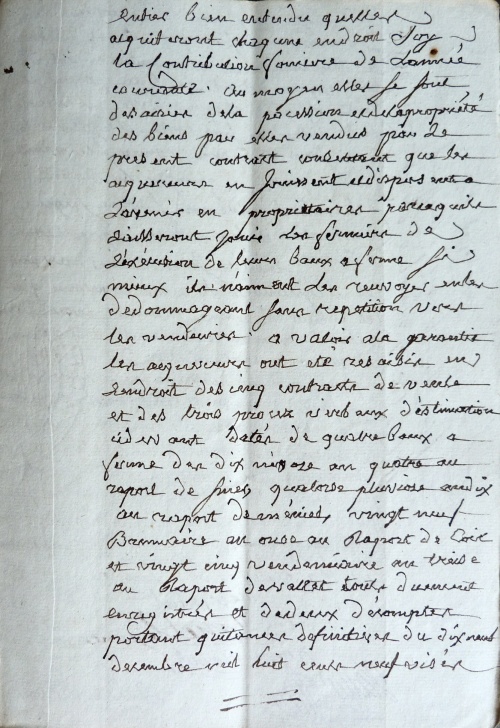 entier bien entendu quelles
aquiteront chaqune endroit Soy
la Contribution fonciere de Lannée
courante. Au moyen elles se sont
desaisies dela pocession et dela propriété
des biens par elles vendus par le
present contrat consentent que les
aquereurs en Jouissent et disposent a
Lavenir en proprietaires parcequils
Laisseront Jouir les fermiers de
Lexécution de leurs baux a ferme si
mieux ils naiment les renvoyer en les
dedommageant sans repetition vers
les venderesses a valoir ala garantie
les aquereurs ont eté resaisis en
Lendroit des cinq contrats de vente
et des trois procez verbaux d'estimation
cidevant datés de quatre baux a
ferme des dix nivose an quatre au
raport de quatorze pluviose an dix
au raport de vingt neuf
Brumaire an onze au Raport de
et vingt cinq vendemiaire an treize
au Raport devallet tous duement
enregistrés et de deux décomptes
portant quitances definitives du dix neuf
desembre mil huit cents neuf visés